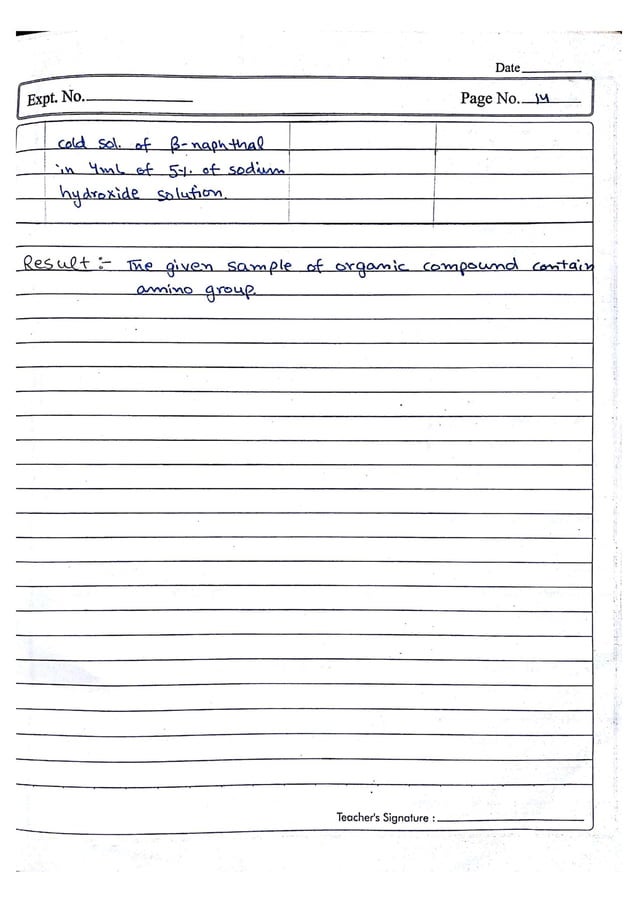 Date
Expt. No.
Page No. 14
cold sol. of β-naphthal
in 4mL of 5%. of sodium
hydroxide solution.
Result :- The given sample of organic compound contain
amino group.
Teacher's Signature :